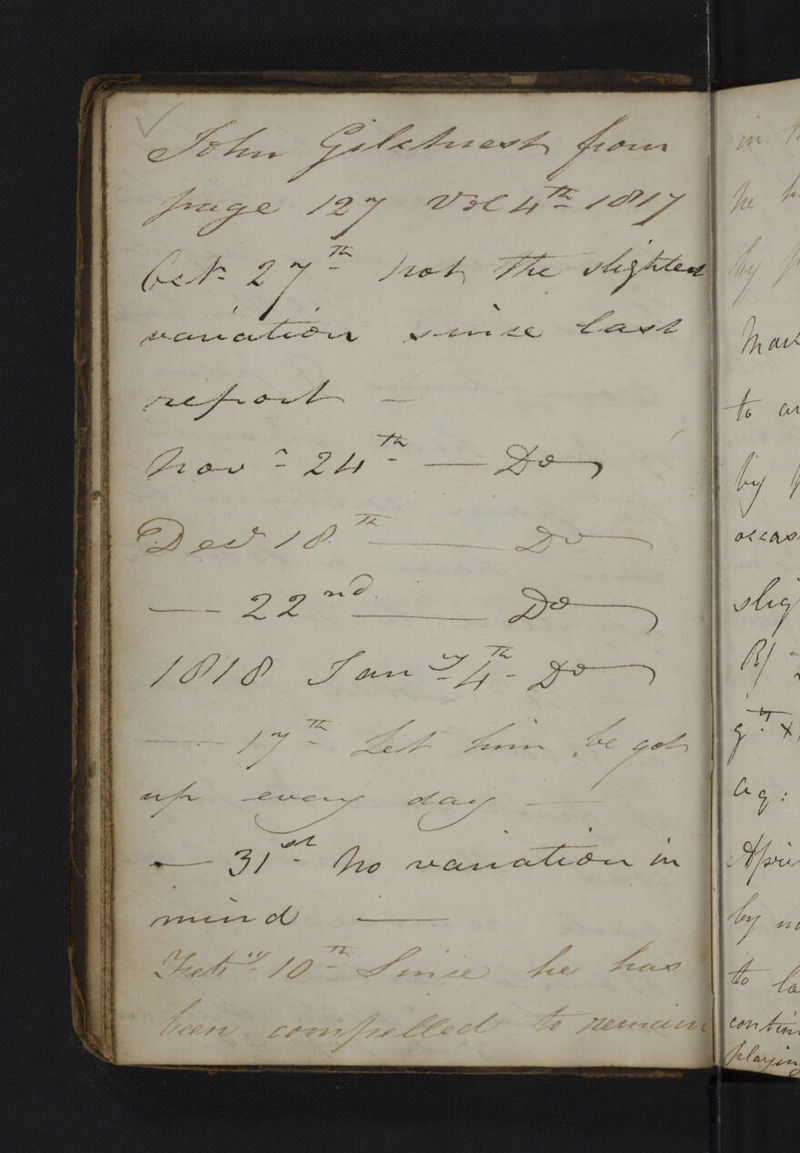 John Gilchrest from
page 127 Vol 4th 1817
Octr 27th not the slightest
variation since last
report —
Novr 24th — Do
Decr 18th — Do
— 22nd — Do
1818 Jany 4th - Do
— 17th Let him be got
up every day —
— 31st No variation in
mind —
Feby 10th Since he has
been compelled to remain
in
he
by
to
by
slig
aq:
by
to
contin
playin